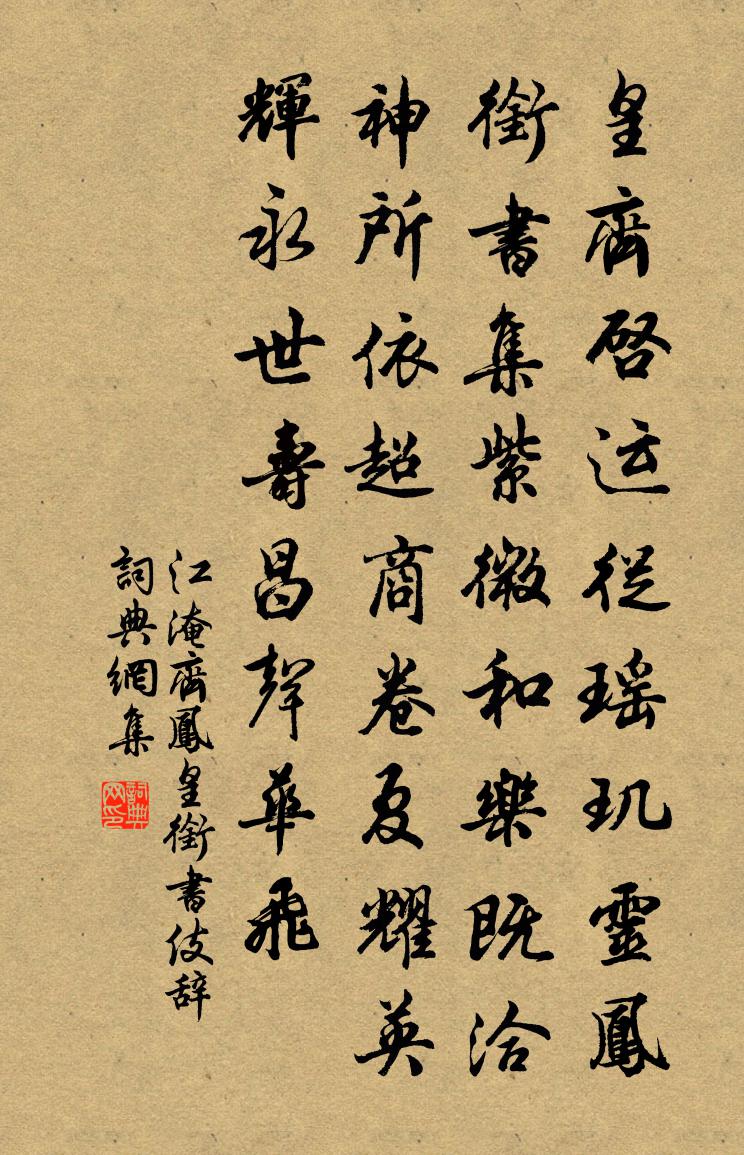 皇齊啓运從瑶玑靈鳳
銜書集紫微和樂既洽
神所依超商卷夏耀英
輝永世壽昌聲華飛
江淹齊鳳皇銜書伎辞
詞典網集
詞典网印